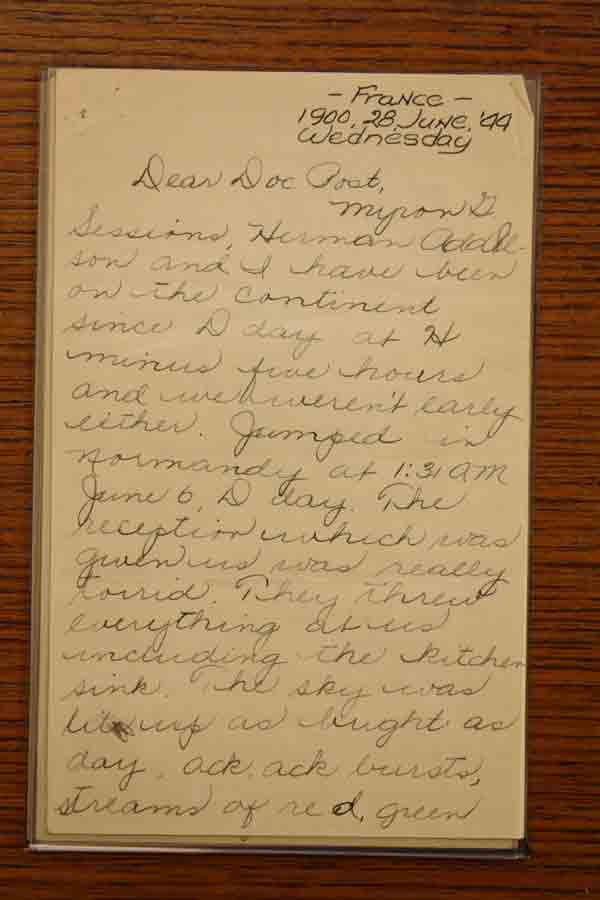 - France -
1900, 28, June, '44
Wednesday
Dear Doc Post,
Myron G
Sessions, Herman Addle-
son and I have been
on the continent
since D day at H
minus five hours
and we weren't early
either. Jumped in
Normandy at 1:31 AM
June 6, D day. The
reception which was
given us was really
torrid. They threw
everything at us
including the kitchen
sink. The sky was
lit up as bright as
day, ack, ack bursts,
streams of red, green